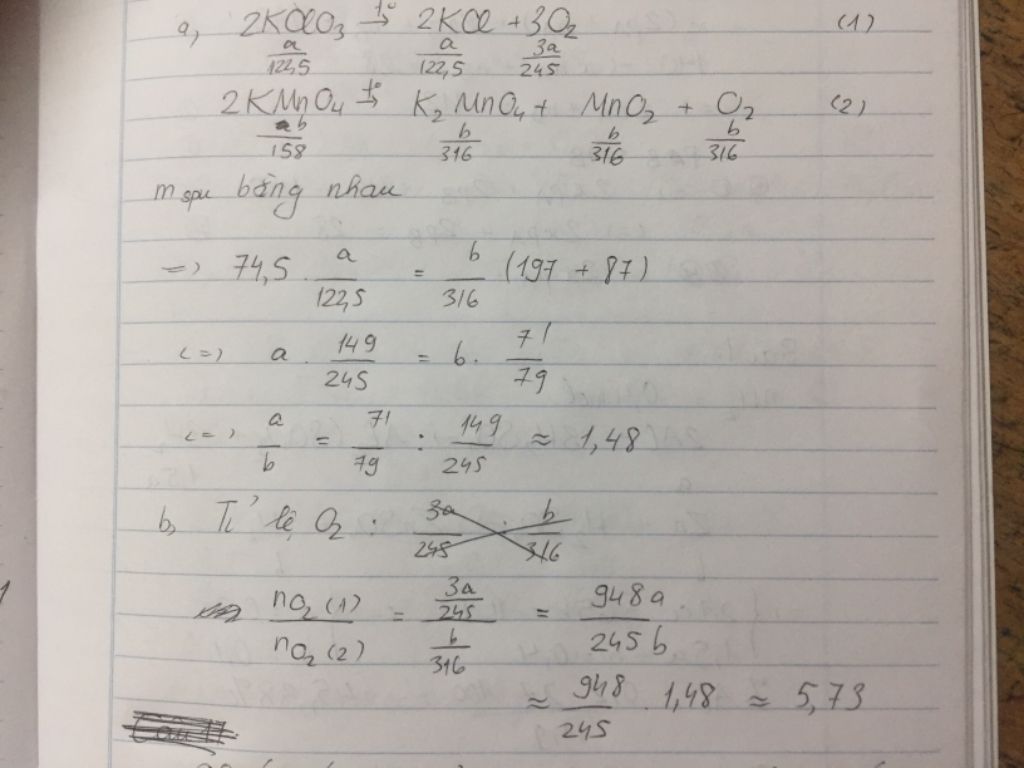 a, 2KClO3 t°→ 2KCl + 3O2 (1)
a/122,5 a/122,5 3a/245
2KMnO4 t°→ K2MnO4 + MnO2 + O2 (2)
b/158 b/316 b/316 b/316
mspu bằng nhau
=> 74,5 . a/122,5 = b/316 (197 + 87)
<=> a . 149/245 = b . 71/79
<=> a/b = 71/79 : 149/245 ≈ 1,48
b, Tỉ lệ O2 : 3a/245 . b/316
nO2 (1)/nO2 (2) = 3a/245 / b/316 = 948a/245b
≈ 948/245 . 1,48 ≈ 5,73